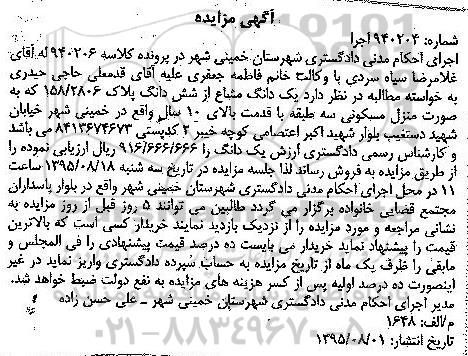 آگهی مزایده
شماره: ۹۴۰۲۰۴ اجرا
اجرای احکام مدنی دادگستری شهرستان خمینی شهر در پرونده کلاسه ۹۴۰۲۰۶ له آقای
غلامرضا سیاه سردی با وکالت خانم فاطمه جعفری علیه آقای قدمعلی حاجی حیدری
به خواسته مطالبه در نظر دارد یک دانگ مشاع از شش دانگ پلاک ۱۵۸/۲۸۰۶ که به
صورت منزل مسکونی سه طبقه با قدمت بالای ۱۰ سال واقع در خمینی شهر خیابان
شهید دستغیب بلوار شهید اکبر اعتصامی کوچه خیبر ۲ کدپستی ۸۴۱۳۶۷۴۶۷۳ می باشد
و کارشناس رسمی دادگستری ارزش یک دانگ را ۹۱۶/۶۶۶/۶۶۶ ریال ارزیابی نموده را
از طریق مزایده به فروش رساند لذا جلسه مزایده در تاریخ سه شنبه ۱۳۹۵/۰۸/۱۸ ساعت
۱۱ در محل اجرای احکام مدنی دادگستری شهرستان خمینی شهر واقع در بلوار پاسداران
مجتمع قضایی خانواده برگزار می گردد طالبین می توانند ۵ روز قبل از روز مزایده به
نشانی مراجعه و مورد مزایده را از نزدیک بازدید نمایند خریدار کسی است که بالاترین
قیمت را پیشنهاد نماید خریدار می بایست ده درصد قیمت پیشنهادی را فی المجلس و
مابقی را ظرف یک ماه از تاریخ مزایده به حساب سپرده دادگستری واریز نماید در غیر
اینصورت ده درصد اولیه پس از کسر هزینه های مزایده به نفع دولت ضبط خواهد شد.
مدیر اجرای احکام مدنی دادگستری شهرستان خمینی شهر - علی حسن زاده
م/الف: ۱۶۴۸
تاریخ انتشار: ۱۳۹۵/۰۸/۰۱
۰۲۱-۸۸۳۴۹۶۷۰-۵